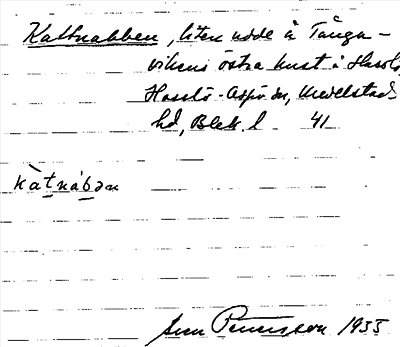 Kattnabben, liten udde å Tånga-
vikens östra kust i Hasslö
Hasslö-Aspö sn, Medelstads
hd, Blek. l 41
kàtnábən
Petersson 1935